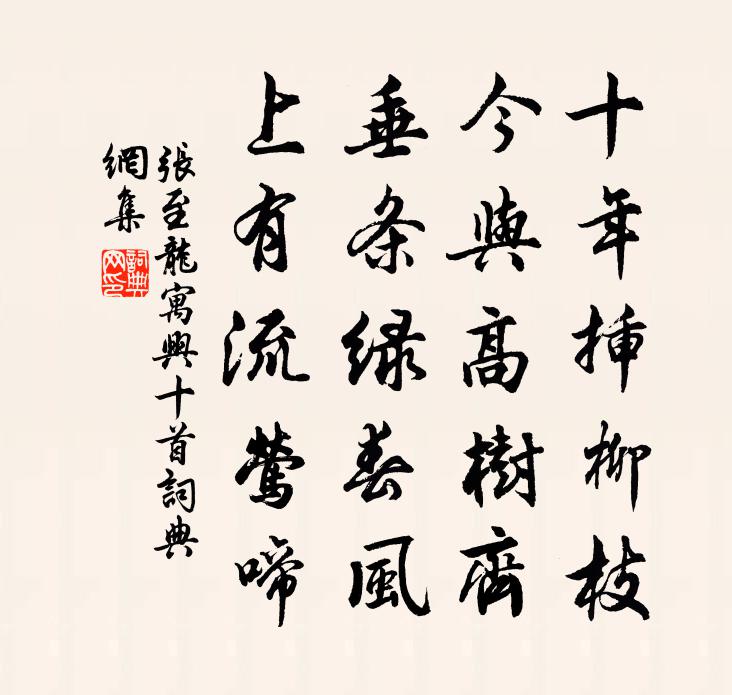 十年插柳枝
今與高樹齊
垂条緑春風
上有流鶯啼
張至龍寓興十首詞典
網集
詞典
网印